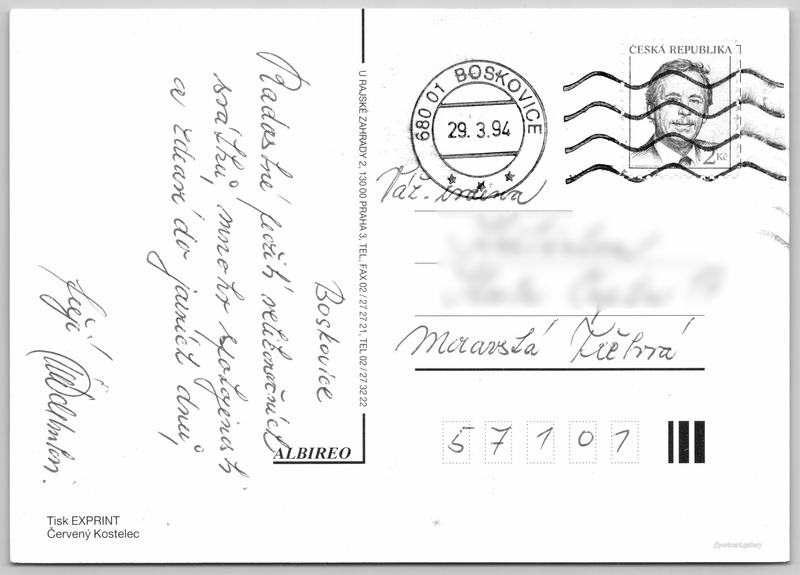 Boskovice
Radostné prožití velikonočních
svátků, mnoho spokojenosti
a zdraví do jarních dnů
přejí
ALBIREO
U RAJSKÉ ZAHRADY 2, 130 00 PRAHA 3, TEL., FAX 02 / 27 27 21, TEL 02 / 27 32 22
Tisk EXPRINT
Červený Kostelec
680 01 BOSKOVICE
29.3.94
ČESKÁ REPUBLIKA
2 Kč
Váž. rodina
Moravská Třebová
5 7 1 0 1